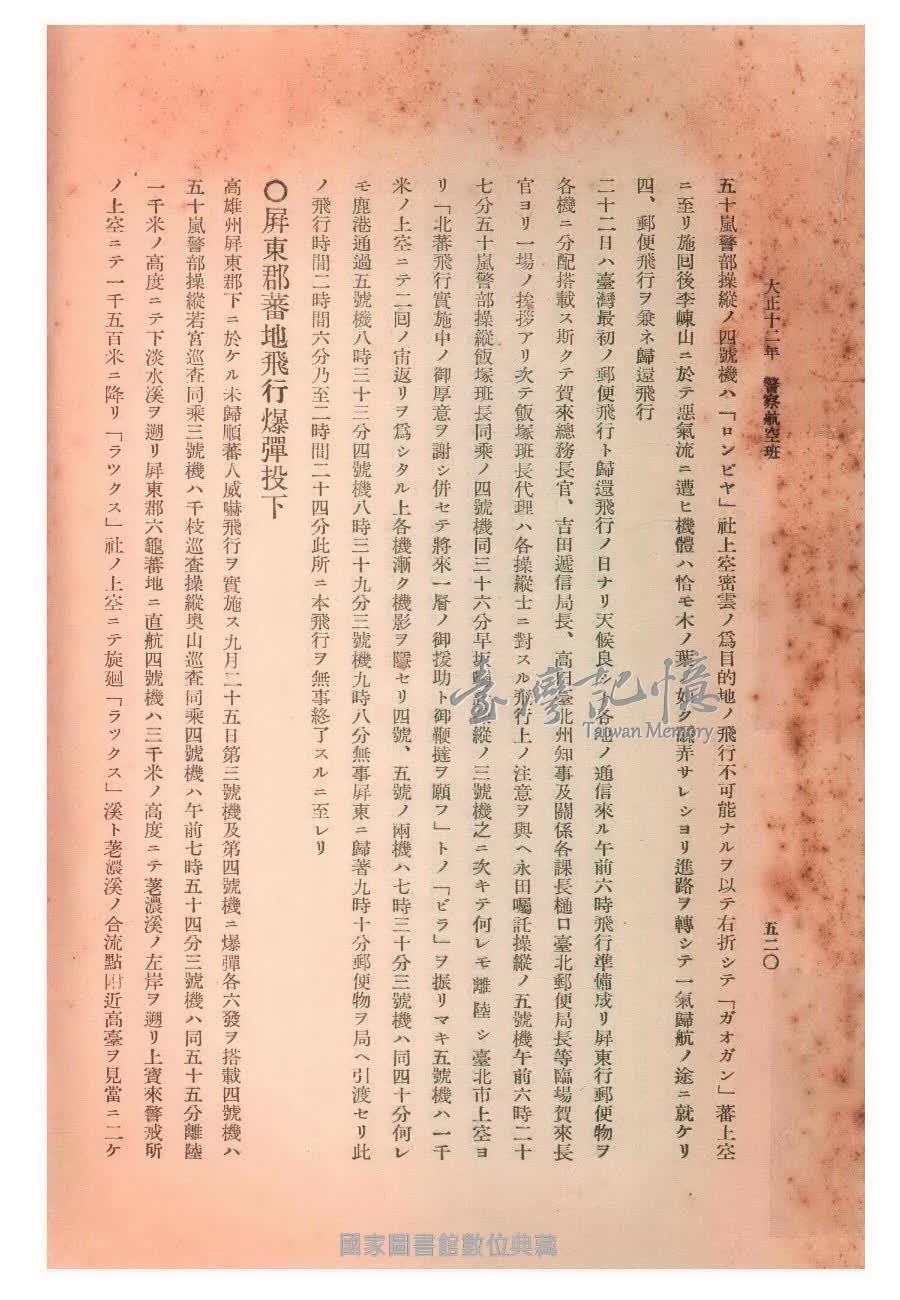 大正十二年 警察航空班 五二〇
五十嵐警部操縱ノ四號機ハ「ロンピヤ」社上空密雲ノ爲目的地ノ飛行不可能ナルヲ以テ右折シテ「ガオガン」蕃上空
ニ至リ施囘後李崠山ニ於テ惡氣流ニ遭ヒ機體ハ恰モ木ノ葉ノ如ク弄サレシヨリ進路ヲ轉シテ一氣歸航ノ途ニ就ケリ
四、郵便飛行ヲ兼ネ歸還飛行
二十二日ハ臺灣最初ノ郵便飛行ト歸還飛行ノ日ナリ天候良シト各地ノ通信來ル午前六時飛行準備成リ屏東行郵便物ヲ
各機ニ分配搭載ス斯クテ賀來總務長官、吉田遞信局長、高田臺北州知事及關係各課長樋口臺北郵便局長等臨場賀來長
官ヨリ一場ノ挨拶アリ次テ飯塚班長代理ハ各操縱士ニ對スル飛行上ノ注意ヲ與ヘ永田囑託操縱ノ五號機午前六時二十
七分五十嵐警部操縱飯塚班長同乘ノ四號機同三十六分早坂操縱ノ三號機之ニ次キテ何レモ離陸シ臺北市上空ヨ
リ「北蕃飛行實施中ノ御厚意ヲ謝シ併セテ將來一層ノ御援助ト御鞭撻ヲ願フ」トノ「ビラ」ヲ振リマキ五號機ハ一千
米ノ上空ニテ二囘ノ宙返リヲ爲シタル上各機漸ク機影ヲ隱セリ四號、五號ノ兩機ハ七時三十分三號機ハ同四十分何レ
モ鹿港通過五號機八時三十三分四號機八時三十九分三號機九時八分無事屏東ニ歸著九時十分郵便物ヲ局ヘ引渡セリ此
ノ飛行時間二時間六分乃至二時間二十四分此所ニ本飛行ヲ無事終了スルニ至レリ
〇屏東郡蕃地飛行爆彈投下
高雄州屏東郡下ニ於ケル未歸順蕃人威嚇飛行ヲ實施ス九月二十五日第三號機及第四號機ニ爆彈各六發ヲ搭載四號機ハ
五十嵐警部操縱若宮巡査同乘三號機ハ千枝巡査操縱奧山巡査同乘四號機ハ午前七時五十四分三號機ハ同五十五分離陸
一千米ノ高度ニテ下淡水溪ヲ遡リ屏東郡六龜蕃地ニ直航四號機ハ三千米ノ高度ニテ荖濃溪ノ左岸ヲ遡リ上寶來警戒所
ノ上空ニテ一千五百米ニ降リ「ラツクス」社ノ上空ニテ旋廻「ラックス」溪ト荖濃溪ノ合流點附近高臺ヲ見當ニ二ケ
臺灣記憶
Taiwan Memory
國家圖書館數位典藏